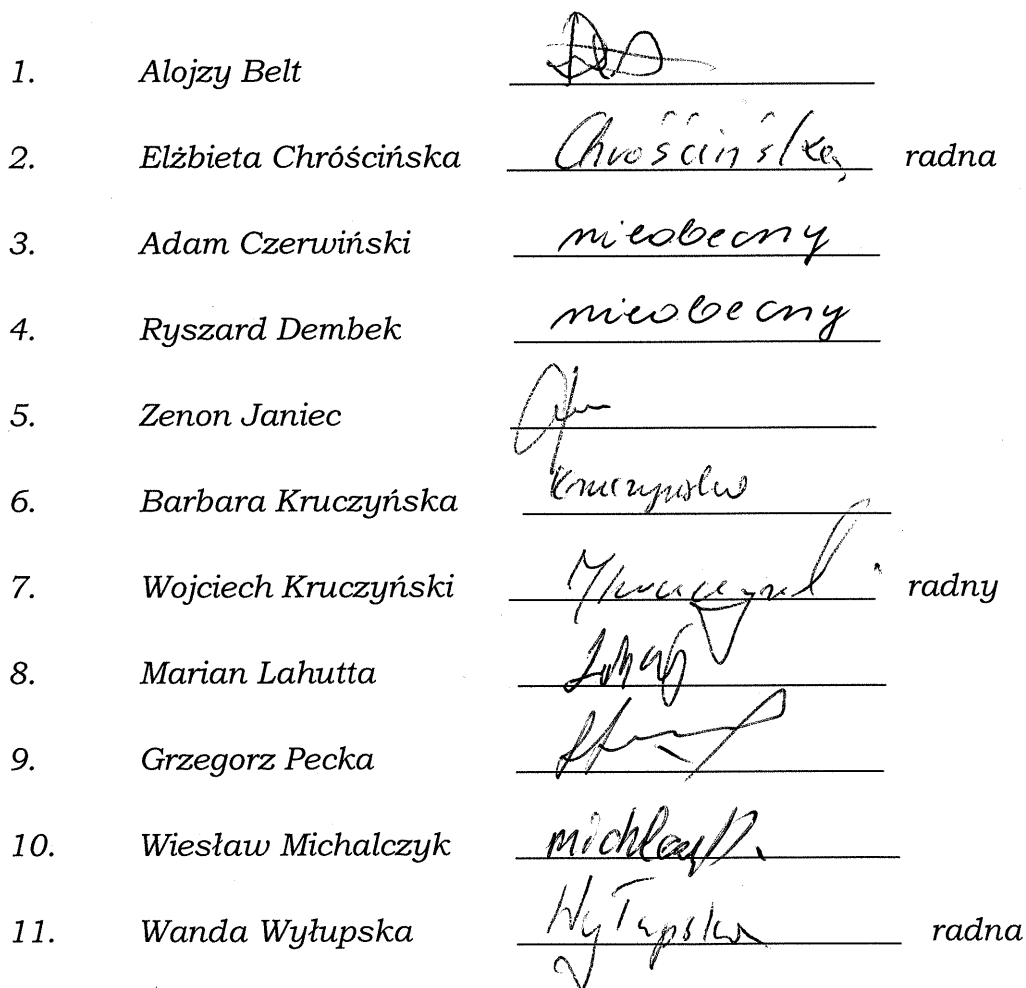 1. Alojzy Belt
2. Elżbieta Chróścińska Chróścińska radna
3. Adam Czerwiński nieobecny
4. Ryszard Dembek nieobecny
5. Zenon Janiec
6. Barbara Kruczyńska
7. Wojciech Kruczyński radny
8. Marian Lahutta
9. Grzegorz Pecka
10. Wiesław Michalczyk
11. Wanda Wyłupska Wyłupska radna